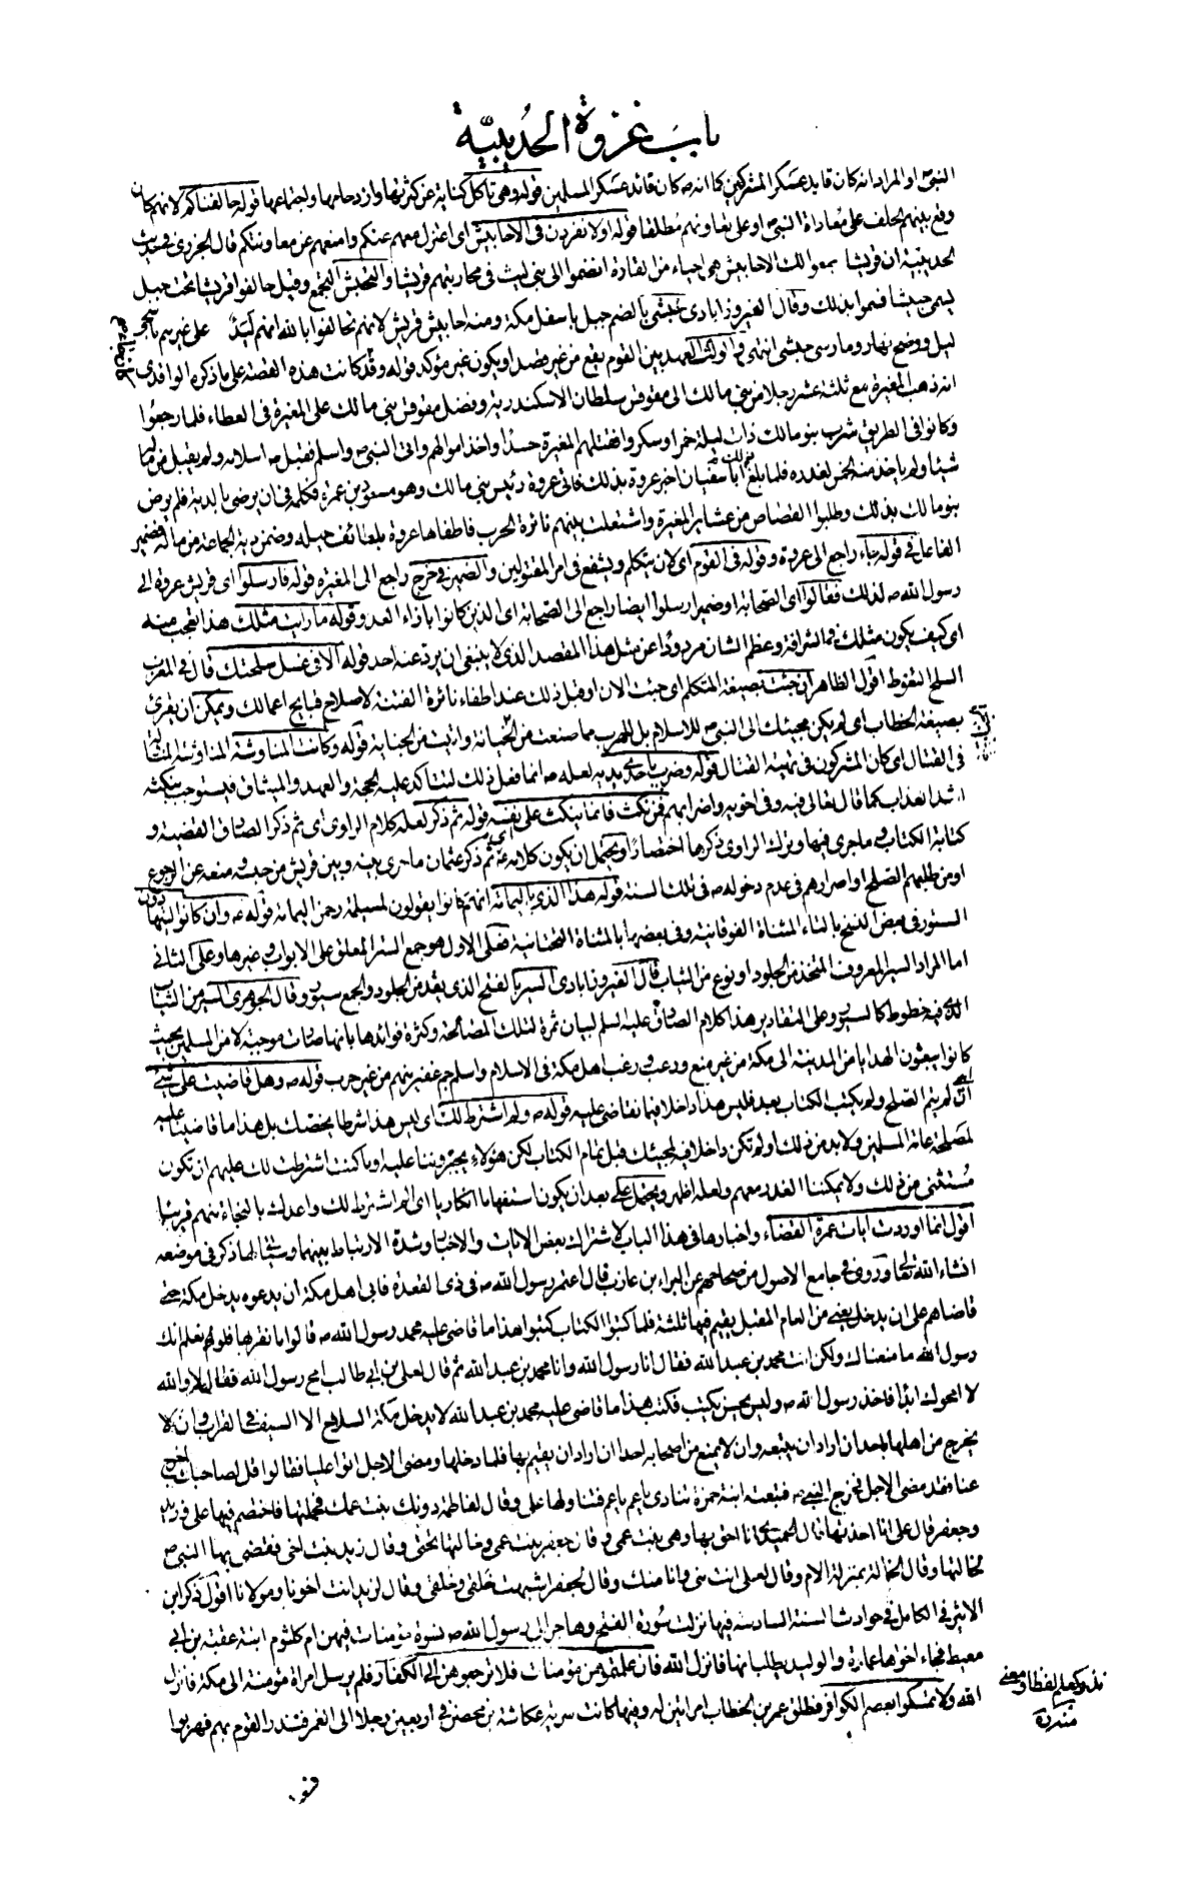 باب غزوة الحديبية
النبي ص او المراد انه كان قايد عسكر المشركين كما انه ص كان قائد عسكر المسلمين قوله وهي تأكل كناية عن كثرتها وازدحامها واجتماعها قوله حالفناكم لانهم كان
وقع بينهم الحلف على معاداة النبي ص او على تعاونهم مطلقا قوله اولا نفردن في الاحابيش اى اعتزل معهم عنكم وامنعهم عن معاونتكم قال الجزري في حديث
الحديبية ان قريشا جمعوا لك الاحابيش هى احياء من القارة انضموا الى بنى ليث في محاربتهم قريشا والتحبش التجمع وقيل حالفوا قريشا تحت جبل
يسمى حبيشا فسموا بذلك وقال الفيروزابادى حبشى بالضم جبل باسفل مكة ومنه احابيش قريش لانهم تحالفوا بالله انهم ليد على غيرهم ما سجى
ليل ووضح نهار وما رسى حبشى انتهى والولث العهد بين القوم يقع من غير قصد او يكون غير مؤكد قوله وقد كانت هذه القصة على ما ذكره الواقدى
انه ذهب المغيرة مع ثلثة عشر رجلا من بني مالك الى مقوقس سلطان الاسكندرية وفضل مقوقس بني مالك على المغيرة في العطاء فلما رجعوا
وكانوا في الطريق شرب بنو مالك ذات ليلة خمرا وسكروا فقتلهم المغيرة حسدا واخذ اموالهم واتى النبي ص واسلم فقبل ص اسلامه ولم يقبل من ماله
شيئا ولم ياخذ منه الخمس لغدره فلما بلغ ذلك ابا سفيان اخبر عروة بذلك فاتى عروة رئيس بني مالك وهو مسعود بن عمرة فكلمه في ان يرضى بالدية فلم يرض
بنو مالك بذلك وطلبوا القصاص من عشاير المغيرة واشتعلت بينهم نائرة الحرب فاطفاها عروة بلطائف حيله وضمن دية الجماعة من ماله فضمير
الفاعل في قوله جاء راجع الى عروة وقوله في القوم اى لان يتكلم ويشفع في امر المقتولين والضمير في خرج راجع الى المغيرة قوله فارسلوا اى قريش عروة الى
رسول الله ص لذلك فقالوا اى الصحابة او ضمير ارسلوا ايضا راجع الى الصحابة اى الذين كانوا بازاء العدو وقوله ما رايت مثلك هذا تعجب منه
اى كيف يكون مثلك في الشرافة وعظم الشان مردودا عن مثل هذا المقصد الذى لا ينبغي ان يرد عنه احد قوله الا في غسل سلحتك قال في المغرب
السلح التغوط اقول الظاهر ان جئت بصيغة المتكلم اى جئت الان او قبل ذلك عند اطفاء نائرة الفتنة لاصلاح قبايح اعمالك ويمكن ان يقرئ
بصيغة الخطاب اى لم يكن مجيئك الى النبي ص للاسلام بل للهرب مما صنعت من الخيانة واتيت من الجناية قوله وكانت المناوشة المناوشة المناولة
في القتال اى كان المشركون في تهيئة القتال قوله وضرب باحدى يديه لعله ص انما فعل ذلك ليتاكد عليه الحجة والعهد والميثاق فيستوجب بنكثه
اشد العذاب كما قال تعالى فيه وفي اخويه واضرابهم فمن نكث فانما ينكث على نفسه قوله ثم ذكر لعله كلام الراوى اى ثم ذكر الصادق القضية و
كتابة الكتاب وما جرى فيها وترك الراوى ذكرها اختصارا ويحتمل ان يكون كلامه ع اى ثم ذكر عثمان ما جرى بينه وبين قريش من حبسه ومنعه عن الرجوع
او من طلبهم الصلح او اصرارهم في عدم دخوله ص في تلك السنة قوله هذا الذي باليمامة انهم كانوا يقولون لمسيلمة رحمن اليمامة قوله ص وان كانوا ليتهادون
الستور في بعض النسخ بالتاء المثناة الفوقانية وفي بعضها بالمثناة التحتانية فعلى الاول هو جمع الستر المعلق على الابواب وغيرها وعلى الثانى
اما المراد السير المعروف المتخذ من الجلود او نوع من الثياب قال الفيروزابادى السير بالفتح الذى يقد من الجلود والجمع سيور وقال الجوهرى السير من الثياب
الذى فيه خطوط كالسيور وعلى التقادير هذا كلام الصادق عليه السلم لبيان ثمرة تلك المصالحة وكثرة فوائدها بانها صارت موجبة لامن المسلمين بحيث
كانوا يبعثون الهدايا من المدينة الى مكة من غير منع ورعب ورغب اهل مكة في الاسلام واسلم جم غفير منهم من غير حرب قوله ص وهل قاضيت على شىء
اى لم يتم الصلح ولم يكتب الكتاب بعد فليس هذا داخلا فيما نقاضى عليه قوله ص ولم اشترط لك اى ليس هذا شرطا يخصك بل هذا ما قاضينا عليه
لمصلحة عامة المسلمين ولا بد من ذلك ولم تكن داخلا فيه لمجيئك قبل تمام الكتاب لكن هؤلاء يجبروننا عليه او ما كنت اشترطت لك عليهم ان تكون
مستثنى من ذلك ولا يمكننا الغدر معهم ولعله اظهر ويحتمل على بعد ان يكون استفهاما انكاريا اى الم اشترط لك واعدك بالنجاة منهم قريبا
اقول انما اوردت ايات عمرة القضاء واخبارها في هذا الباب لاشتراك بعض الايات والاخبار وشدة الارتباط بينهما وسيأتى ما ذكر في موضعه
انشاء الله تعالى وروى في جامع الاصول من صحاحهم عن البراء بن عازب قال اعتمر رسول الله ص في ذى القعدة فابى اهل مكة ان يدعوه يدخل مكة حتى
قاضاهم على ان يدخل يعنى من العام المقبل يقيم فيها ثلثة فلما كتبوا الكتاب كتبوا هذا ما قاضى عليه محمد رسول الله ص قالوا ما نقر بها فلو نعلم انك
رسول الله ما منعناك ولكن انت محمد بن عبد الله فقال انا رسول الله وانا محمد بن عبد الله ثم قال لعلى بن ابى طالب امح رسول الله فقال لا والله
لا امحوك ابدا فاخذ رسول الله ص وليس يحسن يكتب فكتب هذا ما قاضى عليه محمد بن عبد الله لا يدخل مكة السلاح الا السيف في القراب وان لا
يخرج من اهلها باحد ان اراد ان يتبعه وان لا يمنع من اصحابه احدا ان اراد ان يقيم بها فلما دخلها ومضى الاجل اتوا عليا فقالوا قل لصاحبك اخرج
عنا فقد مضى الاجل فخرج النبى ص فتبعته ابنة حمزة تنادى يا عم يا عم فتناولها على وقال لفاطمة دونك بنت عمك فحملتها فاختصم فيها على وزيد
وجعفر قال على انا اخذتها قال الحميدى انا احق بها وهى بنت عمى وقال جعفر بنت عمى وخالتها تحتى وقال زيد بنت اخى فقضى بها النبي ص
لخالتها وقال الخالة بمنزلة الام وقال لعلى انت منى وانا منك وقال لجعفر اشبهت خلقى وخلقى وقال لزيد انت اخونا ومولانا اقول ذكر ابن
الاثير في الكامل في حوادث السنة السادسة فيها نزلت سورة الفتح وهاجر الى رسول الله ص نسوة مؤمنات فيهن ام كلثوم ابنة عقبة بن ابى
معيط فجاء اخواها عمارة والوليد يطلبانها فانزل الله فان علمتموهن مؤمنات فلا ترجعوهن الى الكفار فلم يرسل امراة مؤمنة الى مكة فانزل
الله ولا تمسكوا بعصم الكوافر فطلق عمر بن الخطاب امراتين له وفيها كانت سرية عكاشة بن محصن في اربعين رجلا الى الغمر فنذر القوم بهم فهربوا